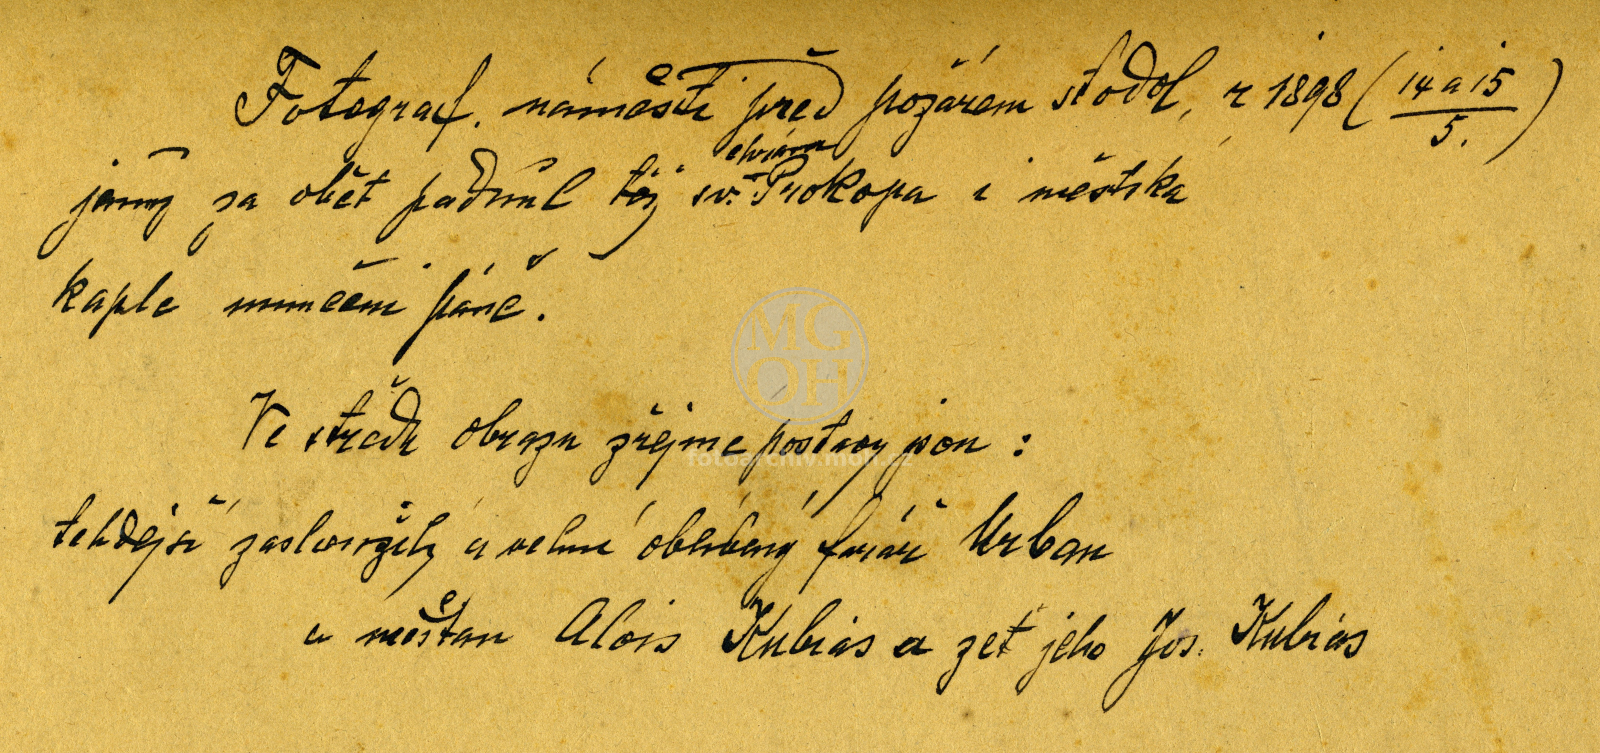 Fotograf. náměstí před požárem stodol, r 1898 (14 a 15/5.)
jemuž za oběť padnul též chrám sv. Prokopa i městská
kaple umučení páně.
Ve středu obrazu zřejmé postavy jsou:
tehdejší zasloužilý a velmi oblíbený farář Urban
a měšťan Alois Kubias a zeť jeho Jos. Kubias
MG OH
fotoarchiv.mgh.cz